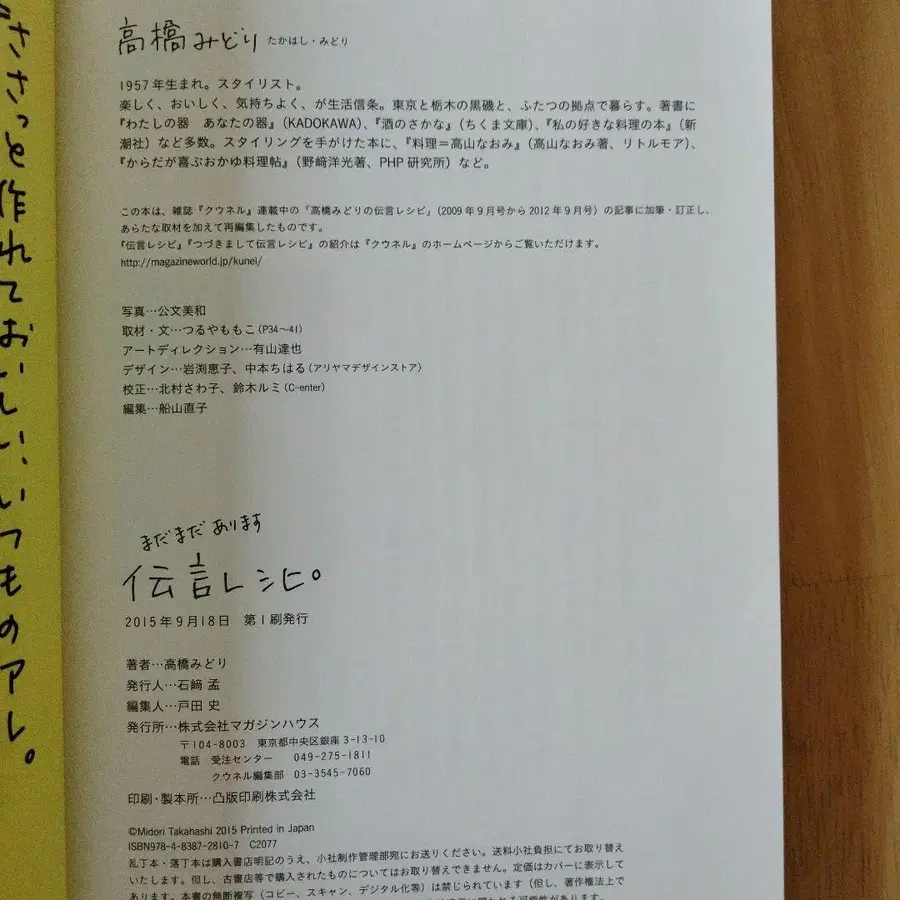 『ささっと作れておいしい、いつものアレ。
高橋みどり たかはし・みどり
1957年生まれ。スタイリスト。
楽しく、おいしく、気持ちよく、が生活信条。東京と栃木の黒磯と、ふたつの拠点で暮らす。著書に
『わたしの器　あなたの器』(KADOKAWA)、『酒のさかな』(ちくま文庫)、『私の好きな料理の本』(新
潮社)など多数。スタイリングを手がけた本に、『料理=高山なおみ』(高山なおみ著、リトルモア)、
『からだが喜ぶおかゆ料理帖』(野﨑洋光著、PHP研究所)など。
この本は、雑誌『クウネル』連載中の「高橋みどりの伝言レシピ」(2009年9月号から2012年9月号)の記事に加筆・訂正し、
あらたな取材を加えて再編集したものです。
『伝言レシピ』『つづきまして伝言レシピ』の紹介は『クウネル』のホームページからご覧いただけます。
http://magazineworld.jp/kunel/
写真…公文美和
取材・文…つるやももこ(P34〜41)
アートディレクション…有山達也
デザイン…岩渕恵子、中本ちはる(アリヤマデザインストア)
校正…北村さわ子、鈴木ルミ(C-enter)
編集…船山直子
まだまだあります
伝言レシピ。
2015年9月18日　第1刷発行
著者…高橋みどり
発行人…石﨑 孟
編集人…戸田 史
発行所…株式会社マガジンハウス
〒104-8003　東京都中央区銀座3-13-10
電話　受注センター　049-275-1811
クウネル編集部　03-3545-7060
印刷・製本所…凸版印刷株式会社
©Midori Takahashi 2015 Printed in Japan
ISBN978-4-8387-2810-7　C2077
乱丁本・落丁本は購入書店明記のうえ、小社制作管理部宛にお送りください。送料小社負担にてお取り替え
いたします。但し、古書店等で購入されたものについてはお取り替えできません。定価はカバーに表示して
あります。本書の無断複写(コピー、スキャン、デジタル化等)は禁じられています(但し、著作権法上で